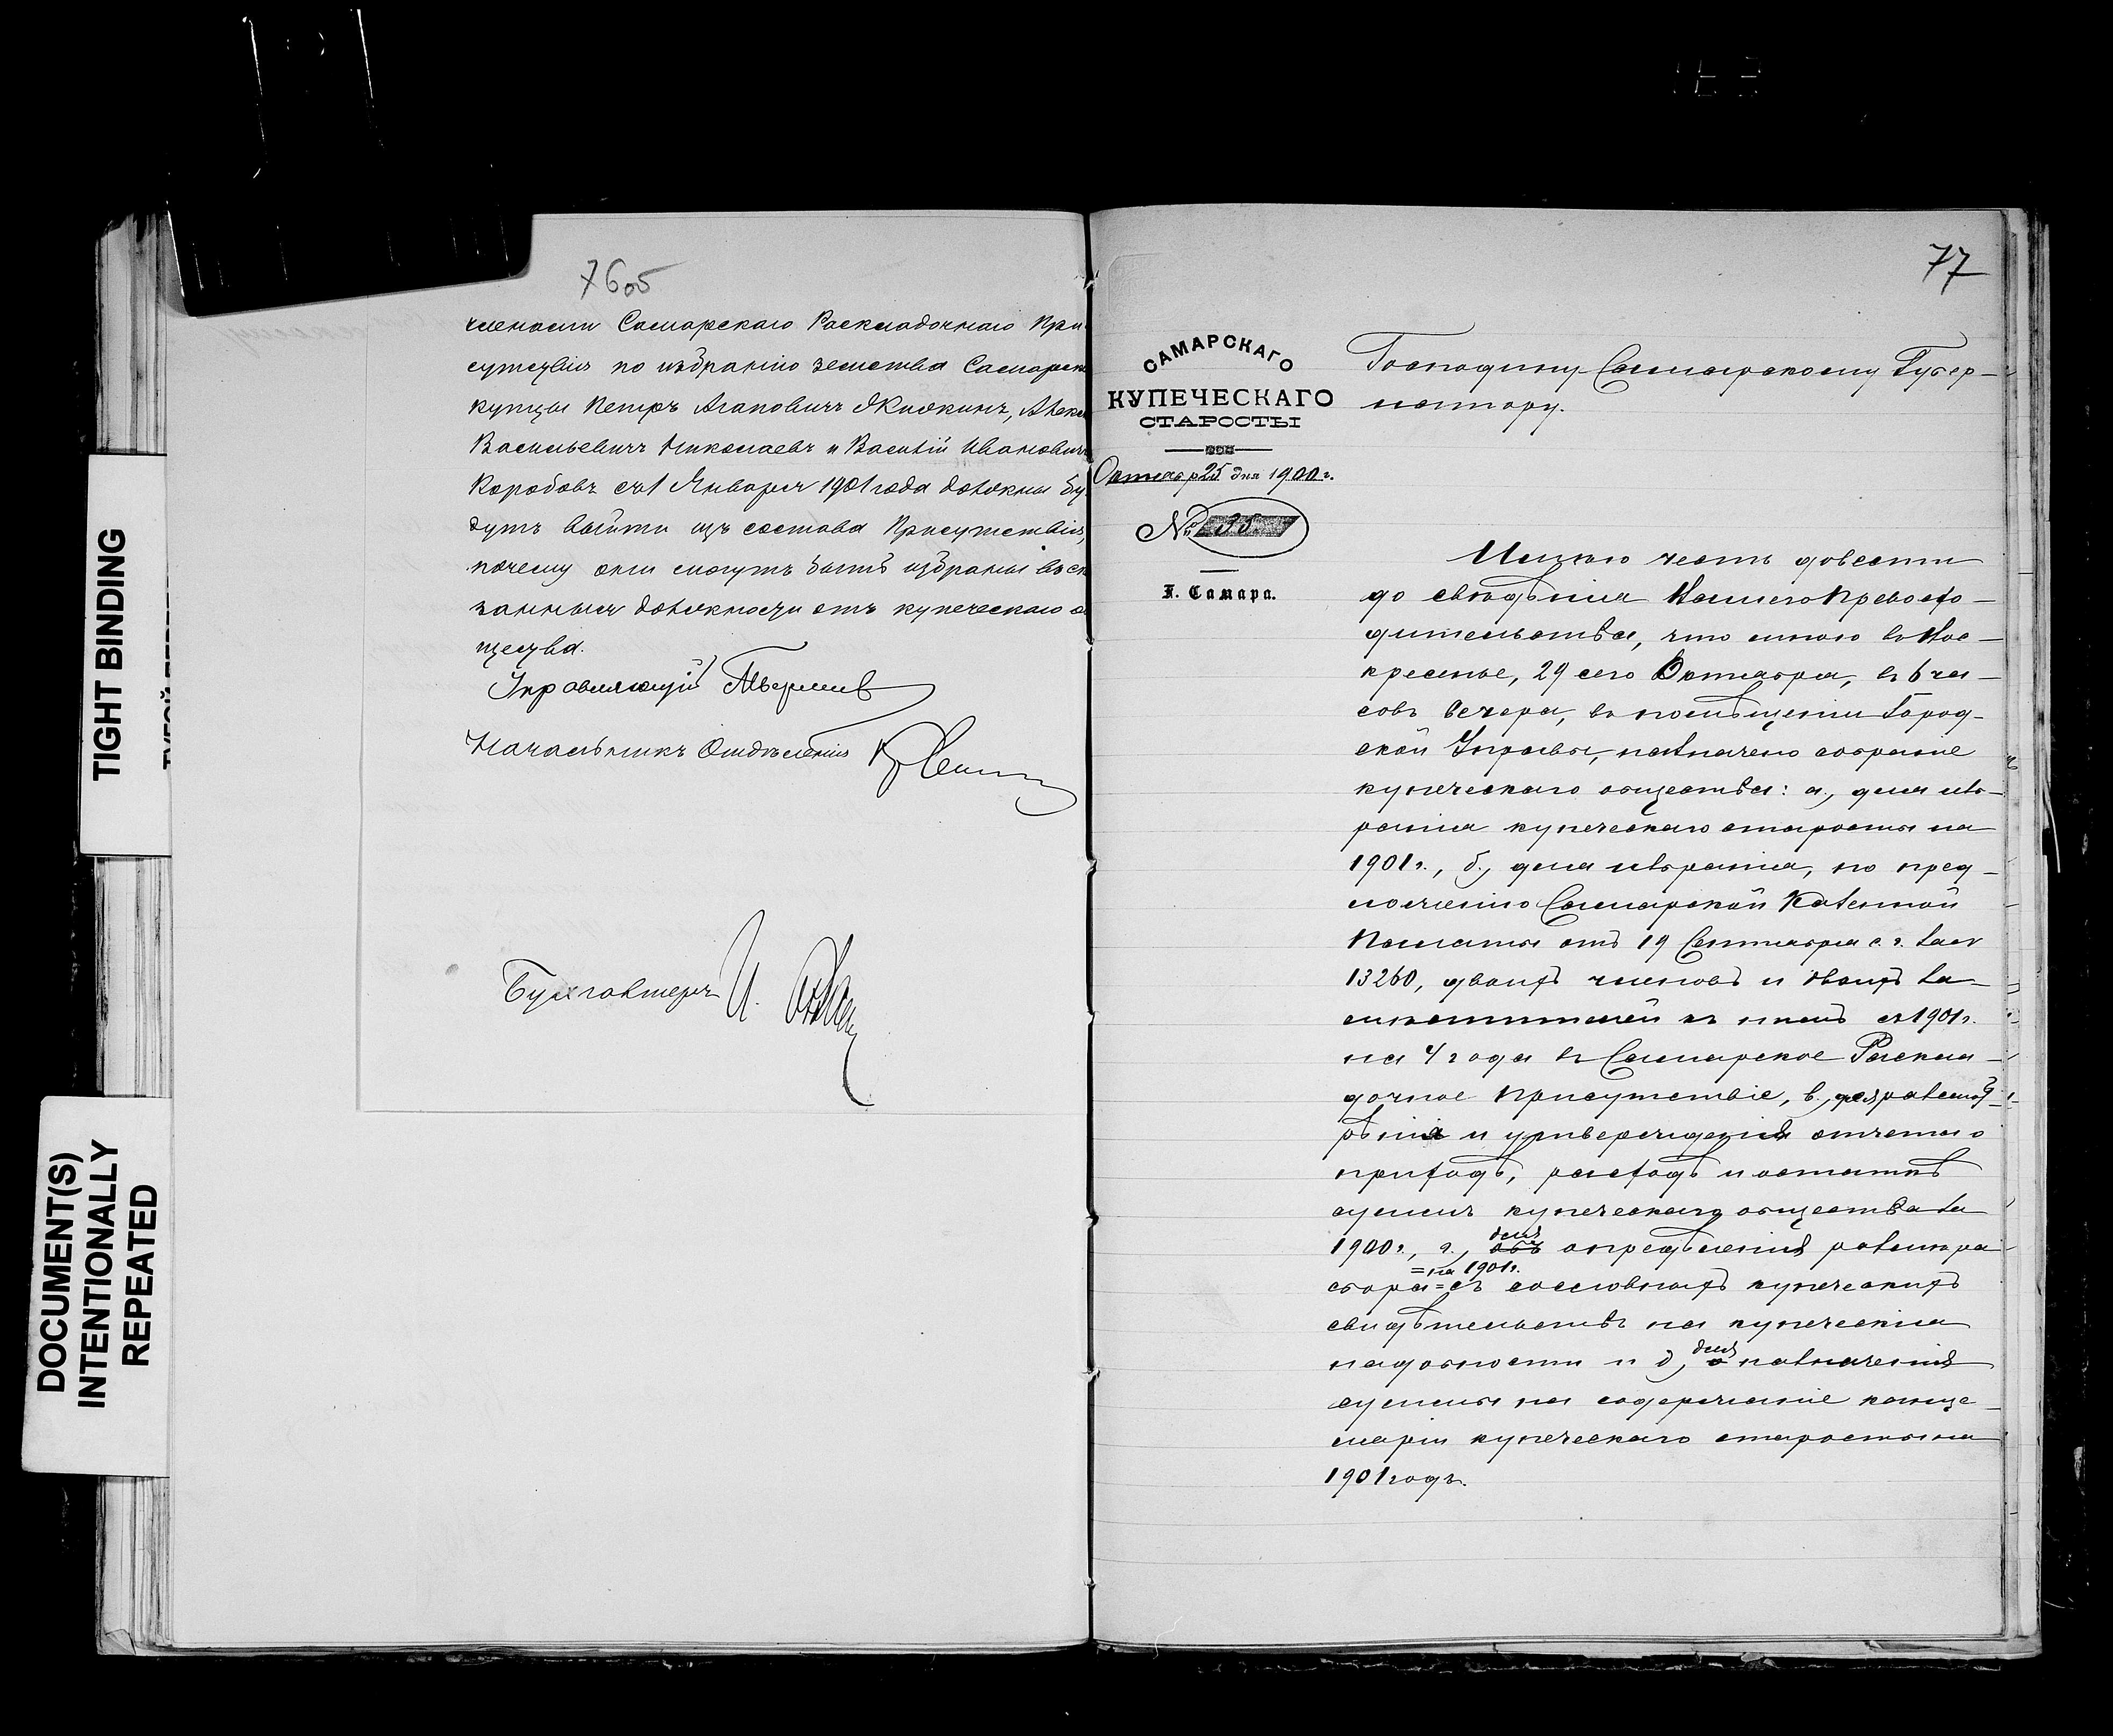 TIGHT BINDING
DOCUMENT(S)
INTENTIONALLY
REPEATED
76об
членами Самарскаго Раскладочнаго При-
сутствія по избранію земства Самарск
купцы Петръ Агаповичъ Алекс
Васильевичъ Николаевъ и Василій Ивановичъ
Коробовъ съ 1 Января 1901 года должны бу-
дутъ выйти изъ состава Присутствія,
почему они могутъ быть избраны въ ск
занныя должности отъ купеческаго о
щества.
Управляющій
Начальникъ Отдѣленія
Бухгалтеръ И.
77
САМАРСКАГО
КУПЕЧЕСКАГО
СТАРОСТЫ
Октября 25 дня 1900 г.
№ 95
Г. Самара.
Господину Самарскому Губер-
натору.
Имѣю честь довести
до свѣдѣнія Вашего Превосхо-
дительства, что мною въ Вос-
кресенье, 29 сего Октября, въ 6 ча-
совъ вечера, въ помѣщеніи Город-
ской Управы, назначено собраніе
купеческаго общества: а, для изб-
ранія купеческаго старосты на
1901 г., б, для избранія, по пред-
ложенію Самарской Казенной
Палаты отъ 19 Сентября с. г. за №
13260, двоихъ членовъ и двоихъ за-
мѣстителей къ нимъ съ 1901 г.
на 4 года въ Самарское Расклa-
дочное Присутствіе, в., для разсмот-
рѣнія и утвержденія отчета о
приходѣ, расходѣ и остаткѣ
суммъ купеческаго общества за
1900 г., г., объ для опредѣленія размѣра
сбора =на 1901 г.= съ сословныхъ купеческихъ
свидѣтельствъ на купеческія
надобности и д, о для назначенія
суммы на содержаніе канце-
ляріи купеческаго старосты на
1901 годъ.